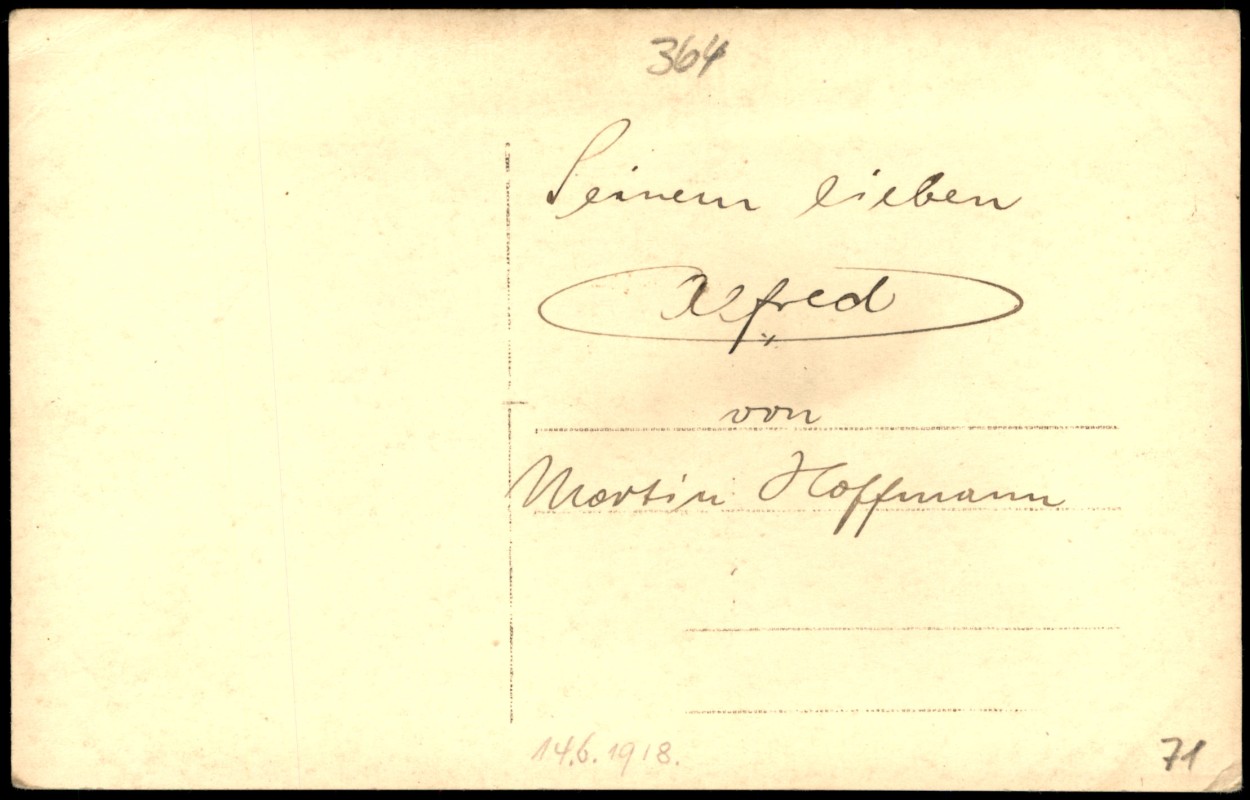 364
Seinem lieben
Alfred
von
Martin Hoffmann
14.6.1918.
71